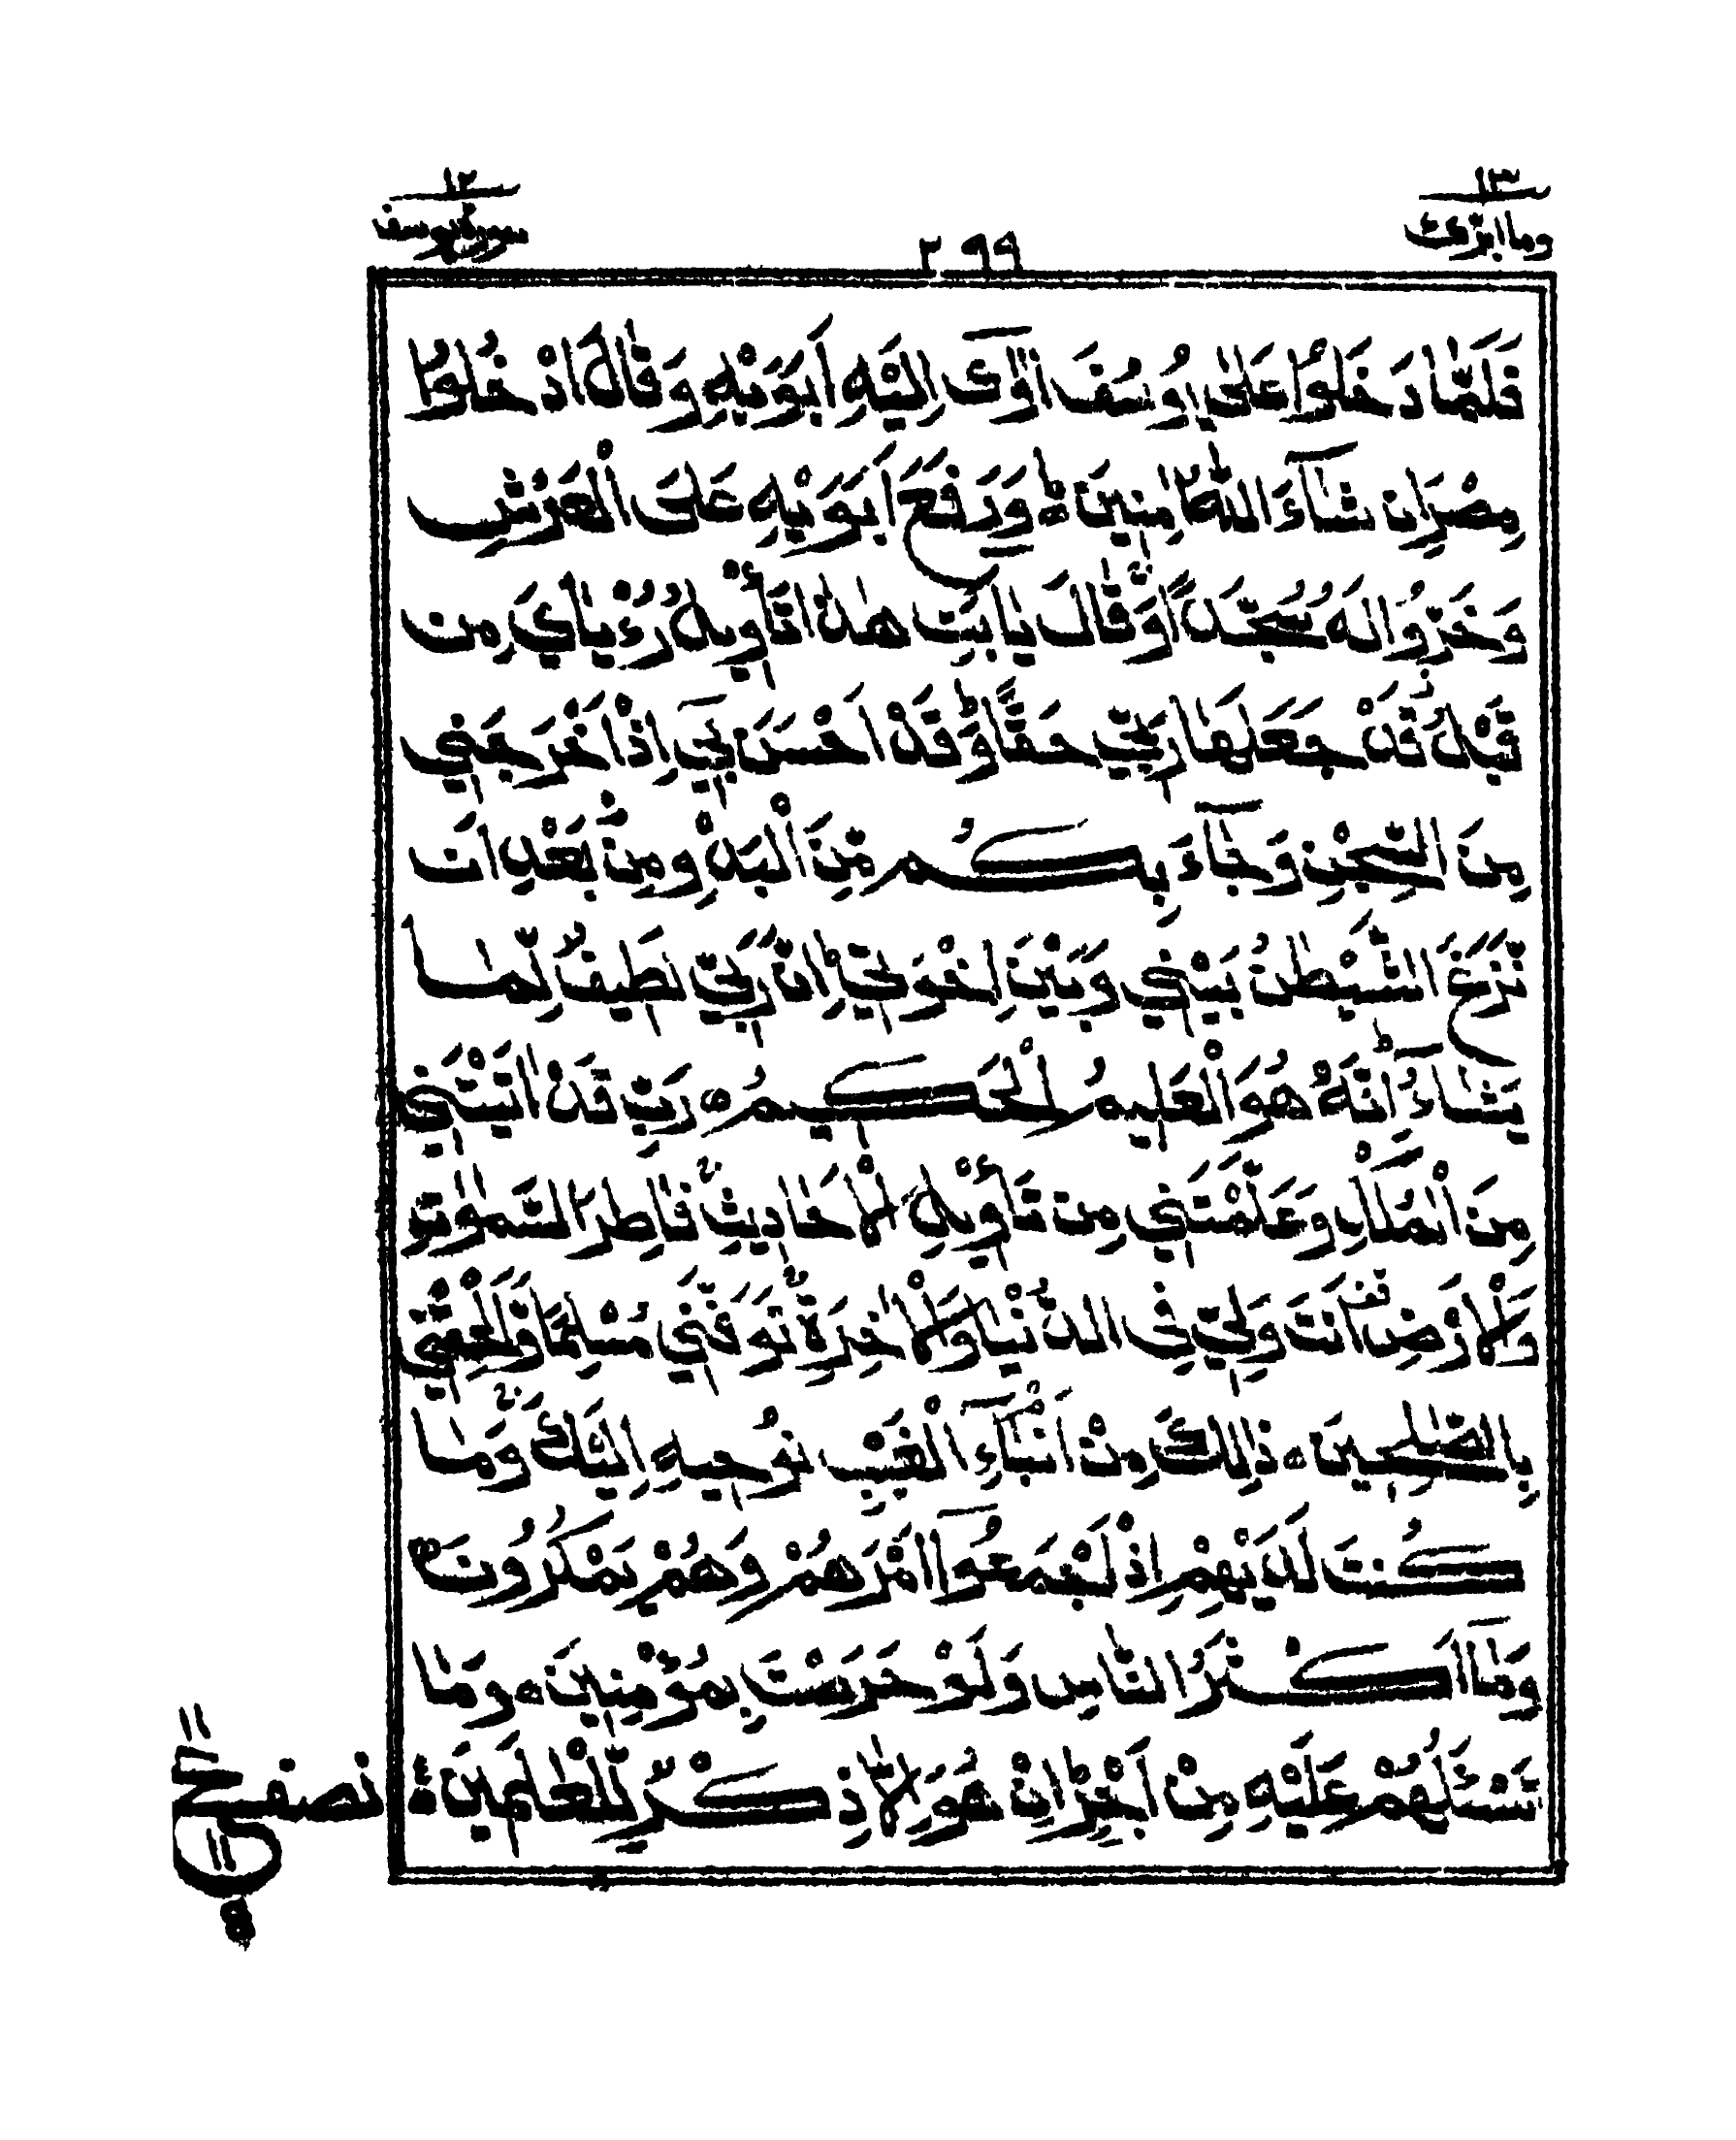 ١٣
وما ابرئ
٢٩٩
١٢
سورة يوسف
فَلَمَّا دَخَلُوْا عَلٰى يُوسُفَ اٰوٰٓى اِلَيْهِ اَبَوَيْهِ وَقَالَ ادْخُلُوْا
مِصْرَ اِنْ شَآءَ اللّٰهُ اٰمِنِيْنَ ؕ وَرَفَعَ اَبَوَيْهِ عَلَى الْعَرْشِ
وَخَرُّوْا لَهٗ سُجَّدًا ۚ وَقَالَ يٰٓاَبَتِ هٰذَا تَأْوِيْلُ رُءْيَايَ مِنْ
قَبْلُ قَدْ جَعَلَهَا رَبِّيْ حَقًّا ؕ وَقَدْ اَحْسَنَ بِيْٓ اِذْ اَخْرَجَنِيْ
مِنَ السِّجْنِ وَجَآءَ بِكُمْ مِّنَ الْبَدْوِ مِنْۢ بَعْدِ اَنْ
نَّزَغَ الشَّيْطٰنُ بَيْنِيْ وَبَيْنَ اِخْوَتِيْ ؕ اِنَّ رَبِّيْ لَطِيْفٌ لِّمَا
يَشَآءُ ؕ اِنَّهٗ هُوَ الْعَلِيْمُ الْحَكِيْمُ ○ رَبِّ قَدْ اٰتَيْتَنِيْ
مِنَ الْمُلْكِ وَعَلَّمْتَنِيْ مِنْ تَأْوِيْلِ الْاَحَادِيْثِ ۚ فَاطِرَ السَّمٰوٰتِ
وَالْاَرْضِ قف اَنْتَ وَلِيّٖ فِى الدُّنْيَا وَالْاٰخِرَةِ ۚ تَوَفَّنِيْ مُسْلِمًا وَّاَلْحِقْنِيْ
بِالصّٰلِحِيْنَ ○ ذٰلِكَ مِنْ اَنْۢبَآءِ الْغَيْبِ نُوْحِيْهِ اِلَيْكَ ۚ وَمَا
كُنْتَ لَدَيْهِمْ اِذْ اَجْمَعُوْٓا اَمْرَهُمْ وَهُمْ يَمْكُرُوْنَ ○
وَمَآ اَكْثَرُ النَّاسِ وَلَوْ حَرَصْتَ بِمُؤْمِنِيْنَ ○ وَمَا
تَسْـَٔلُهُمْ عَلَيْهِ مِنْ اَجْرٍ ؕ اِنْ هُوَ اِلَّا ذِكْرٌ لِّلْعٰلَمِيْنَ ۝
نصف